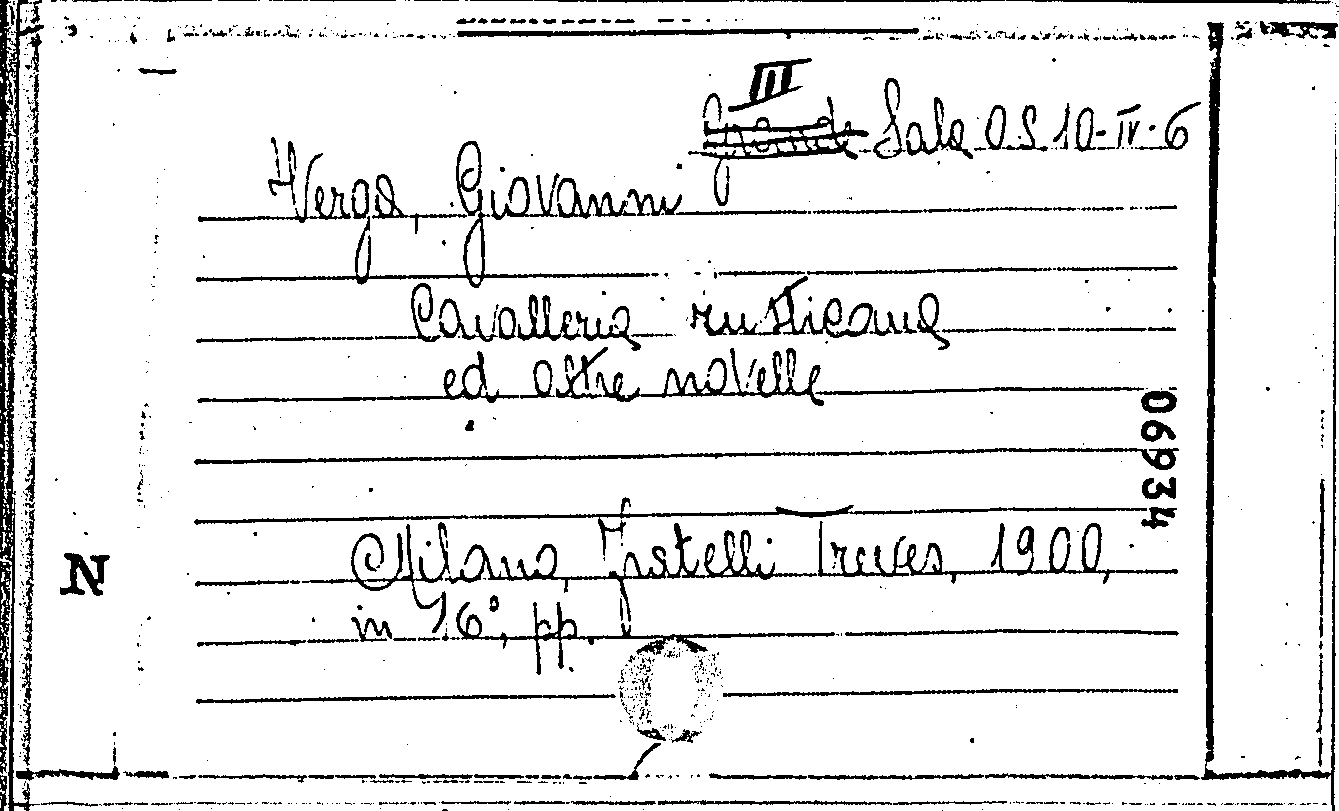 III
Grande Sala O.S 10-IV-6
Verga, Giovanni
Cavalleria rusticana
ed altre novelle
06934
Milano, Fratelli Treves, 1900,
N
in 16°, pp.